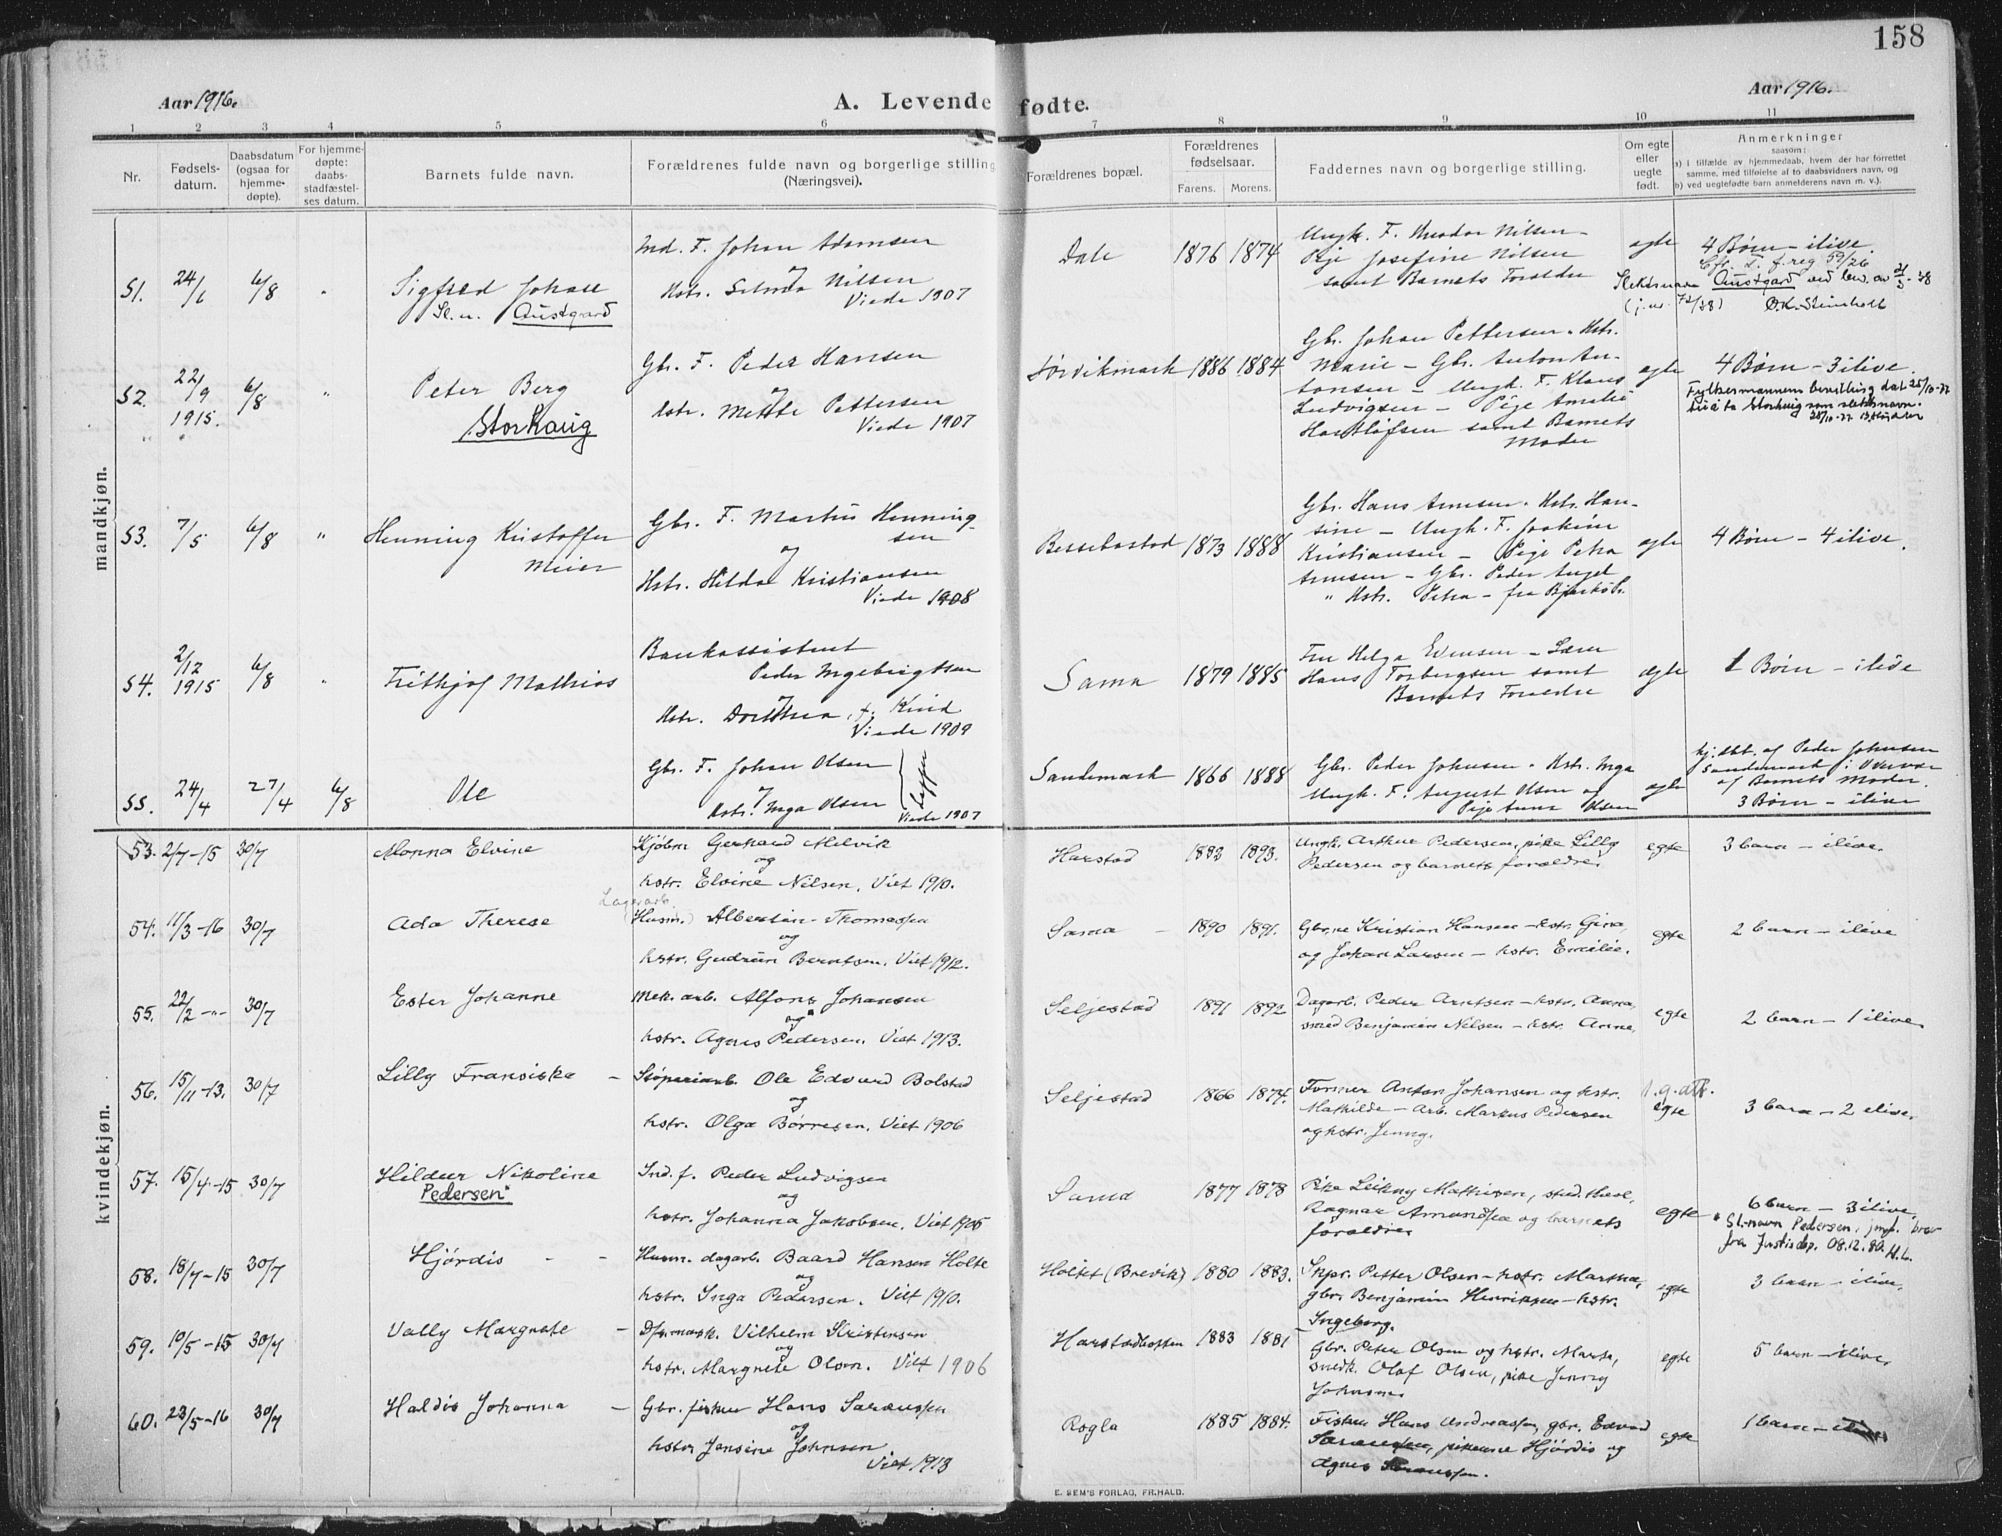 158
Aar 1916.
A. Levende fødte.
Aar 1916.
1 2 3 4 5 6 7 8 9 10 11
Nr.
Fødsels-
datum.
Daabsdatum
(ogsaa for
hjemme-
døpte).
For hjemme-
døpte:
daabs-
stadfæstel-
ses datum.
Barnets fulde navn.
Forældrenes fulde navn og borgerlige stilling
(Næringsvei).
Forældrenes bopæl.
Forældrenes
fødselsaar.
Farens. Morens.
Faddernes navn og borgerlige stilling.
Om egte
eller
uegte
født.
Anmerkninger
saasom:
a) i tilfælde av hjemmedaab, hvem der har forrettet
samme, med tilføielse af to daabsvidners navn, og
b) ved uegtefødte barn anmelderens navn m. v.).
mandkjøn.
51. 24/6 6/8 "
Sigfred Johan
Sl.n. Austgard
Ind. F. Johan Adamsen
og
Hstr. Selma Nilsen
Viede 1907
Dale 1876 1874
Ungk. F. Theodor Nilsen –
Pige Josefine Nilsen
samt Barnets Forældre
egte
4 Børn – ilive.
Slektsnavn Austgard
52. 22/9 1915. 6/8 "
Peter Berg
Storhaug
Gbr. F. Peder Hansen
og
Hstr. Mette Pettersen
Viede 1907
Sørvikmark 1886 1884
Gbr. Johan Pettersen. Hstr.
Marie – Gbr. Anton An-
tonsen – Ungk. F. Klaus
Ludvigsen – Pige Amalie
samt Barnets
Moder
egte
4 Børn – 3 ilive.
Fylkesmannens bevilling dat 25/10-77
til å ta Storhaug som slektsnavn.
53. 7/5 6/8 "
Henning Kristoffer
Meier
Gbr. F. Martin Henning
sen
og
Hstr. Hilda Kristiansen
Viede 1908
Bessebostad 1873 1888
Gbr. Hans Arnesen. Hstr. Han-
sine – Ungk. F. Joakim
Kristiansen – Pige Petra
Arnesen – Gbr. Peder Angel
" Hstr. Petra – fra Bjarkö S.
egte
4 Børn – 4 ilive.
54. 2/12 1915 6/8 "
Fritjof Mathias
Bankassistent
Peder Ingebrigtsen
og
Hstr. Dorthea, f. Kind
Viede 1909
Sama 1879 1885
Fru Helga Evensen – Lærer
Hans Torbergsen samt
Barnets Forældre
egte
1 Børn – ilive
55. 24/4 27/4 6/8
Ole
Gbr. F. Johan Olsen
og
Hstr. Inga Olsen
Viede 1907
Sandemark 1866 1888
Gbr. Peder Johnsen. Hstr. Inga
Ungk. F. August Olsen og
Pige Anna Olsen
egte
hj. dbt. af Peder Johnsen
Sandemark i Overvær
af Barnets Moder.
3 Børn – ilive
kvindekjøn.
53. 2/7-15 30/7
Monna Elvine
Kjøbm Gerhard Milvik
og
hstr. Elvine Nilsen. Viet 1910.
Harstad 1883 1893.
Ungk. Arthur Pedersen, pike Lilly
Pedersen og barnets forældre.
egte
3 barn – ilive.
54. 11/3-16 30/7
Ada Therese
Lagerarb.
(Husm.) Albertin Thomassen
og
hstr. Gudrun Berntsen. Viet 1912.
Sama – 1890 1891.
Gbr.ne Kristian Hansen – hstr. Gina,
og Johan Larsen – hstr. Emilie.
egte
2 barn – ilive
55. 22/2 -"- 30/7
Ester Johanne
Mek. arb. Alfons Johansen
og
hstr. Agnes Pedersen. Viet 1913.
Seljestad 1891 1892
Dagarb. Peder Arntsen – hstr. Anna,
smed Benjamin Nilsen – hstr. Anne,
egte
2 barn – 1 ilive.
56. 15/11-13. 30/7
Lilly Fransiska –
Støperiarb. Ole Edvard Bolstad
og
hstr. Olga Børresen. Viet 1906
Seljestad 1866 1874.
Former Anton Johansen og hstr.
Mathilde – Arb. Markus Pedersen
og hstr. Jenny.
egte
3 barn – 2 ilive.
57. 15/4-15 30/7
Hildur Nikoline
Pedersen*
Ind. f. Peder Ludvigsen
og
hstr. Johanna Jakobsen. Viet 1905
Sama 1877 1878
Pike Leikny Mathisen, stud. theol.
Ragnar Amundsen og barnets
forældre
egte
6 barn – 3 ilive.
* Sl.-navn Pedersen, jmf. brev
fra Justisdep. 08.12.80. H.L.
58. 18/7-15 30/7
Hjørdis – –
Husm. dagarb. Baard Hansen Holte
og
hstr. Inga Pedersen. Viet 1910.
Holtet (Brevik) 1880 1883.
Skpr. Petter Olsen – hstr. Martha,
gbr. Benjamin Henriksen – hstr.
Ingeborg.
egte
3 barn – ilive.
59. 10/5-15 30/7
Vally Margrete –
Vilhelm Kristensen
og
hstr. Margrete Olsen. Viet 1906
Harstadbotten 1883 1881
Gbr. Peter Olsen og hstr. Marta,
smedk. Olaf Olsen, pike Jenny
Johnsen
egte
5 barn – ilive.
60. 23/5-16 30/7
Haldis Johanna –
Gbr. fisker Hans Sørensen
og
hstr Jensine Johnsen.
Viet 1913
Rogla 1885 1884.
Fisker Hans Andreassen, gbr. Edvard
Sørensen, pikerne Hjørdis og
Agnes Sørensen.
egte
1 barn – ilive
E. SEM'S FORLAG, FR.HALD.